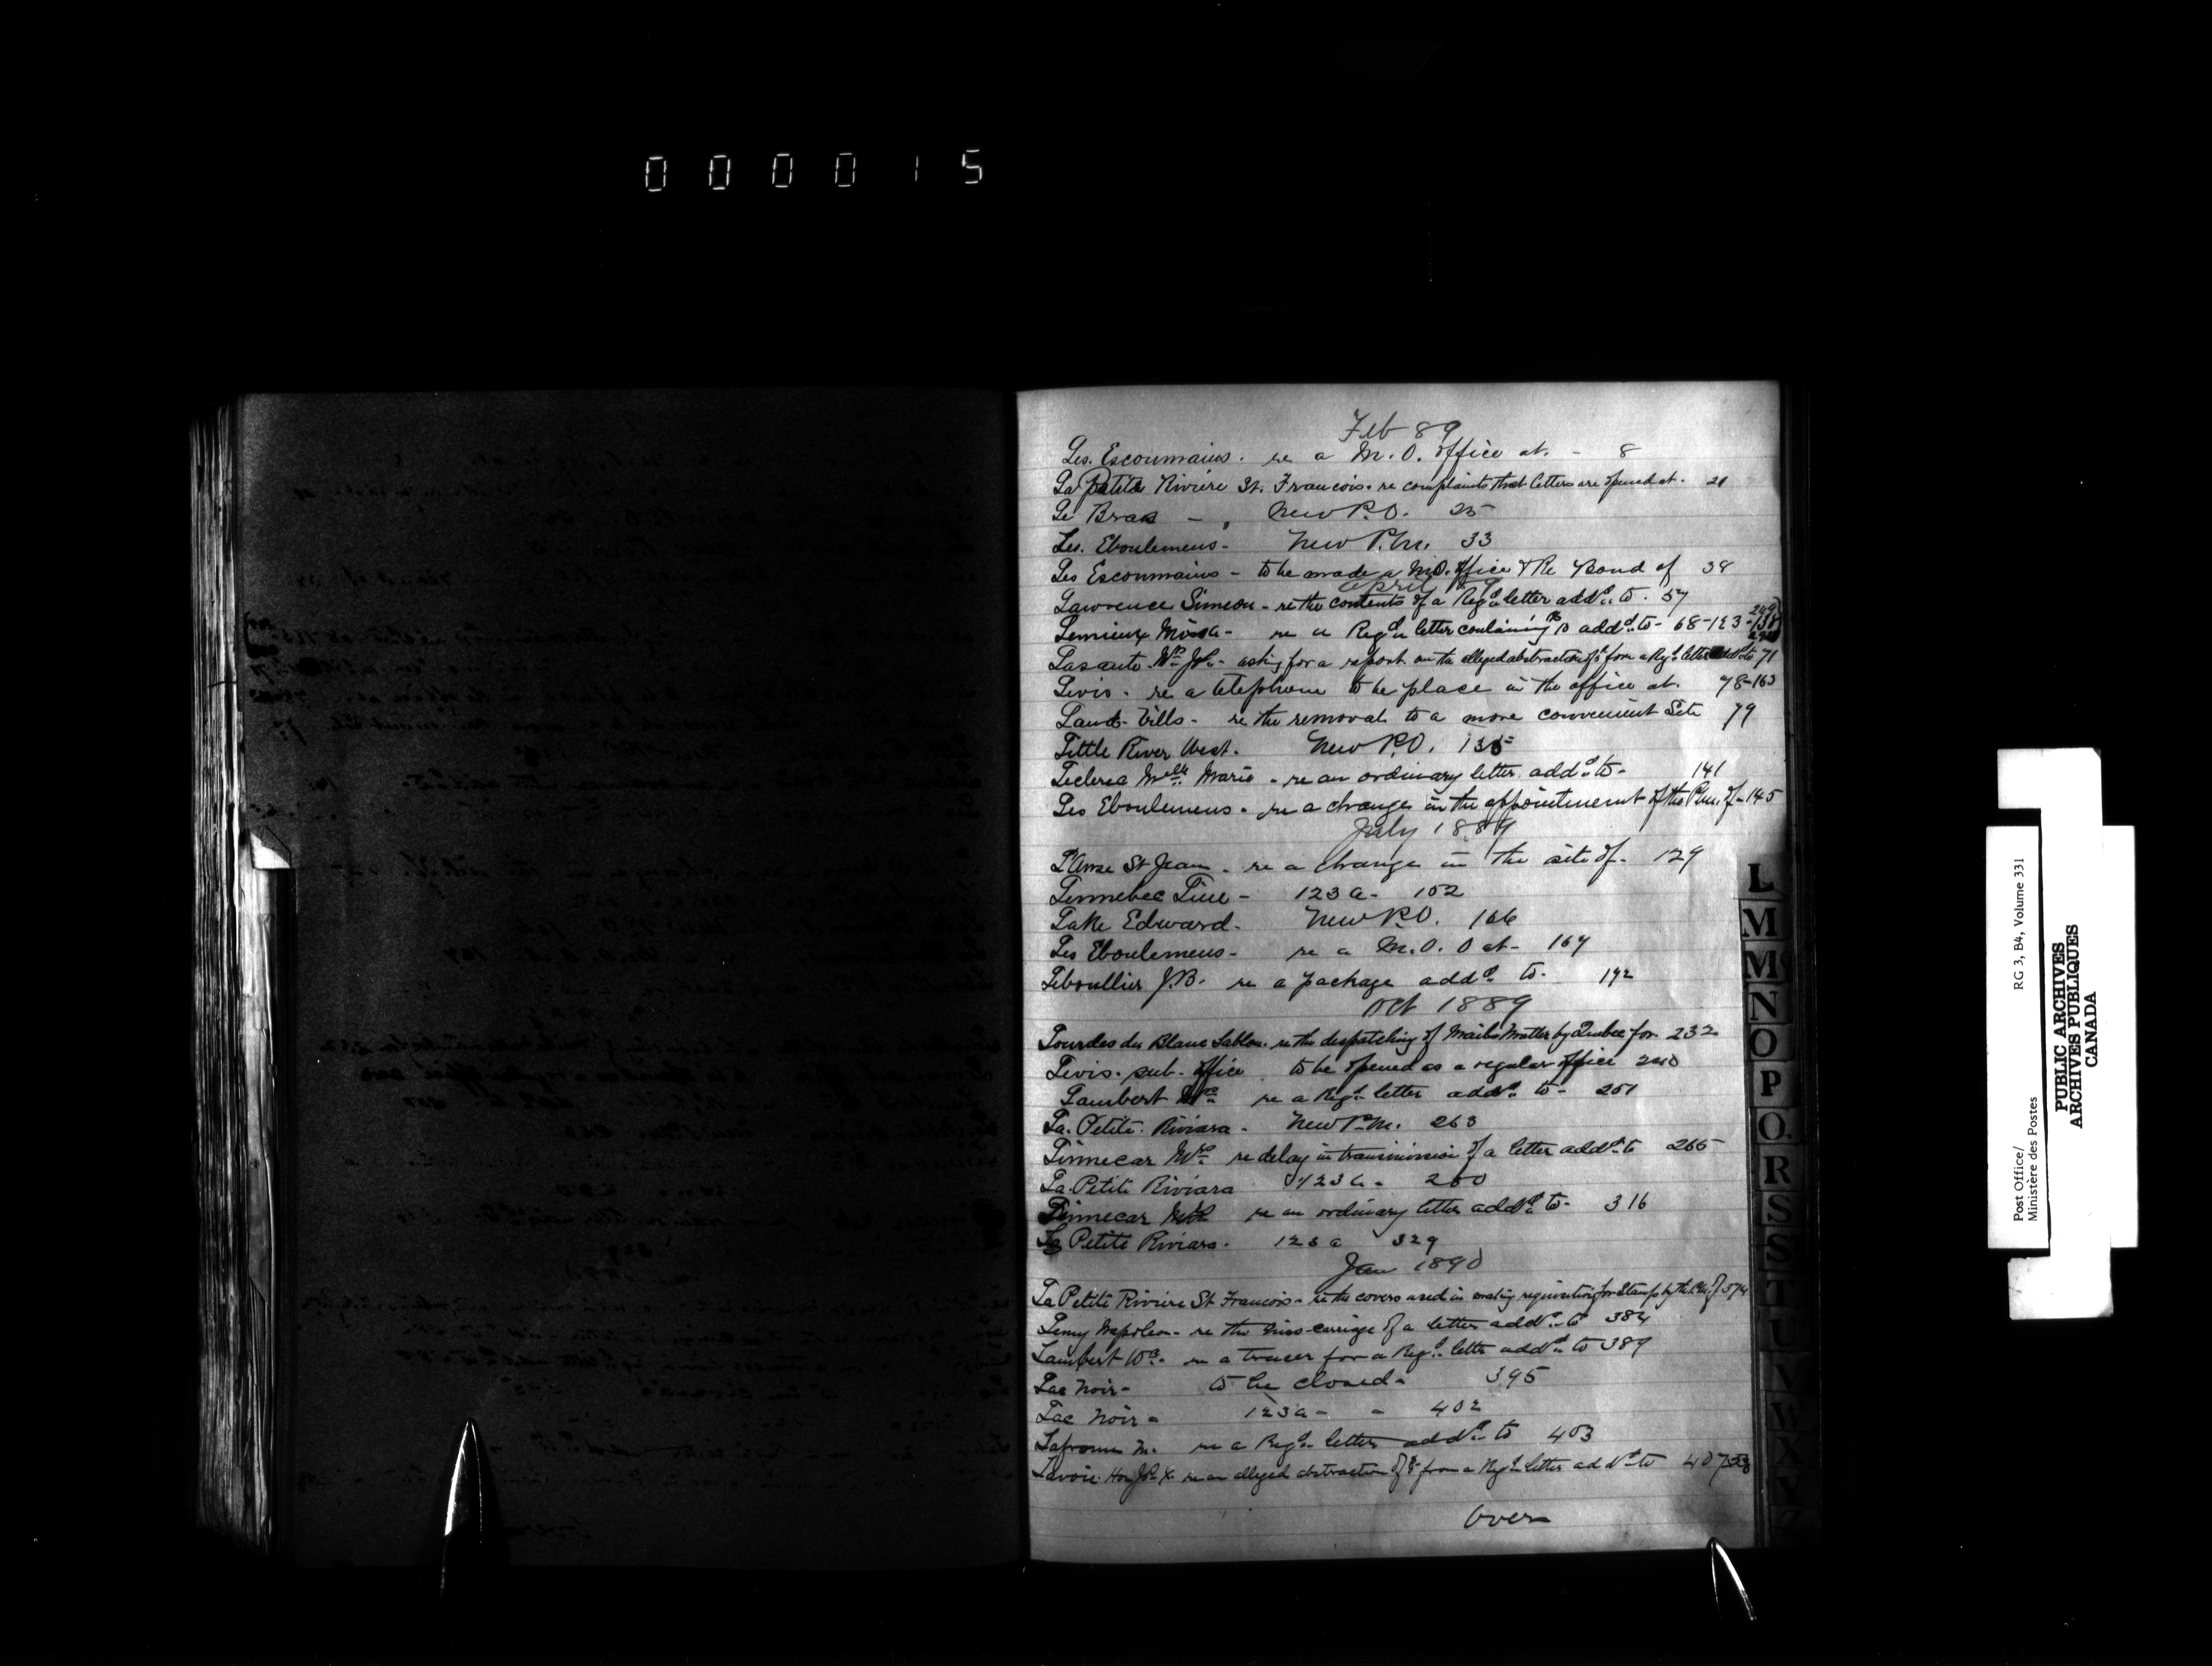 000015
Feb 89
Les. Escoumains. re a M. O. office at. - 8
La Petite Riviere St. Francois. re complaints that letters are opened at. 21
Le Bras - , New P.O. 25
Les. Eboulemens - New P.M. 33
Les Escoumains - to be made a M.O. office & Re Bond of 38
April 89
Lawrence Simeon - re the contents of a Regd letter addd to. 57
Lemieux - re a Regd letter containing addd to - 68-123-138
249
Lasante. Jh. - asking for a report on the alleged abstraction of from a Regd letter addd to 71
Levis. re a telephone to be place in the office at. 78-163
Land. Vills - re the removal to a more convenient Site 79
Little River West. New P.O. 135
Leclerca Melle Marie - re an ordinary letter addd to - 141
Les Eboulemens. re a change in the appointment of the P.M. of - 145
July 1889
L'Anse St Jean. re a change in the site of. 129
Linnebec Line - 123 a - 152
Lake Edward. New P.O. 166
Les Eboulemens - re a M.O.O at - 167
Leboullier J.B. re a package addd to. 192
Oct 1889
Lourdes du Blanc Sablon. re the despatching of Mails Matter by Quebec for 232
Levis. sub. office. to be opened as a regular office 240
Lambert re a Regd letter addd to - 251
La. Petite. Riviara - New P.M. 263
Linnecar Mrs re delay in transmission of a letter addd to 265
La. Petite Riviara 123 a - 280
Linnecar re an ordinary letter addd to - 316
La Petite Riviara. 123 a 329
Jan 1890
La Petite Riviere St Francois - re the covers used in making requisition for Stamps by the P.M. of 374
Lemy Napoleon - re the miss-carriage of a letter addd to 384
Lambert Wm. re a tracer for a Regd letter addd to 389
Lac Noir - to be closed - 395
Lac Noir - 123 a - - 402
M. re a Regd letter addd to 403
Lavoie. re an alleged abstraction of from a Regd letter addd to 407
Over
L
M
Mc
N
O
P
Q.
R
S
S
T
U
V
W
X
Y
Z
Post Office/
Ministère des Postes
RG 3, B4, Volume 331
PUBLIC ARCHIVES
ARCHIVES PUBLIQUES
CANADA